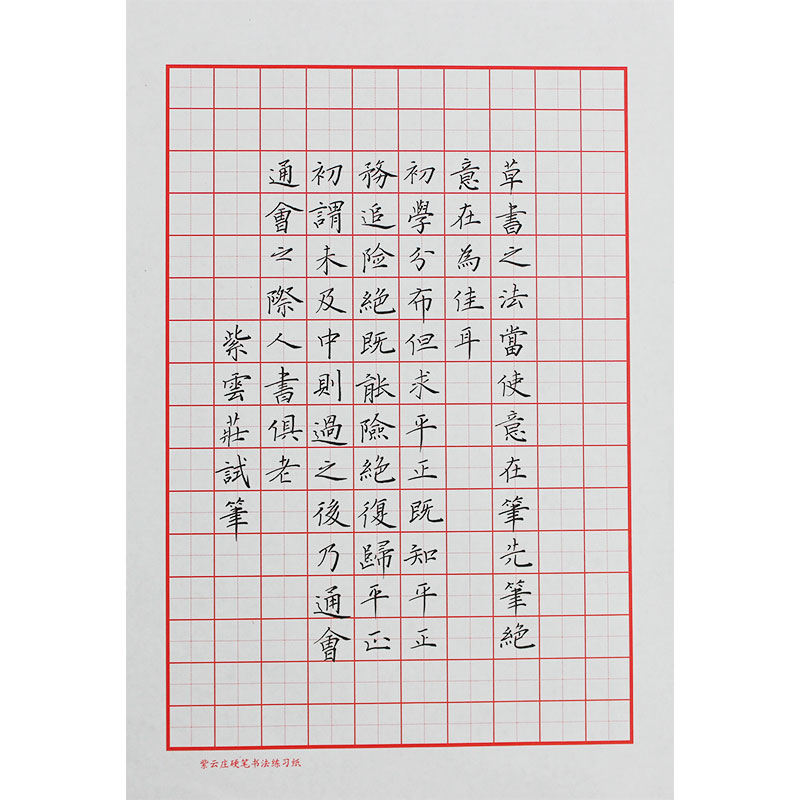 草書之法當使意在筆先筆絶
意在為佳耳
初學分布但求平正既知平正
務追险絶既能險絶復歸平正
初謂未及中則過之後乃通會
通會之際人書俱老
紫雲莊試筆
紫云庄硬笔书法练习纸